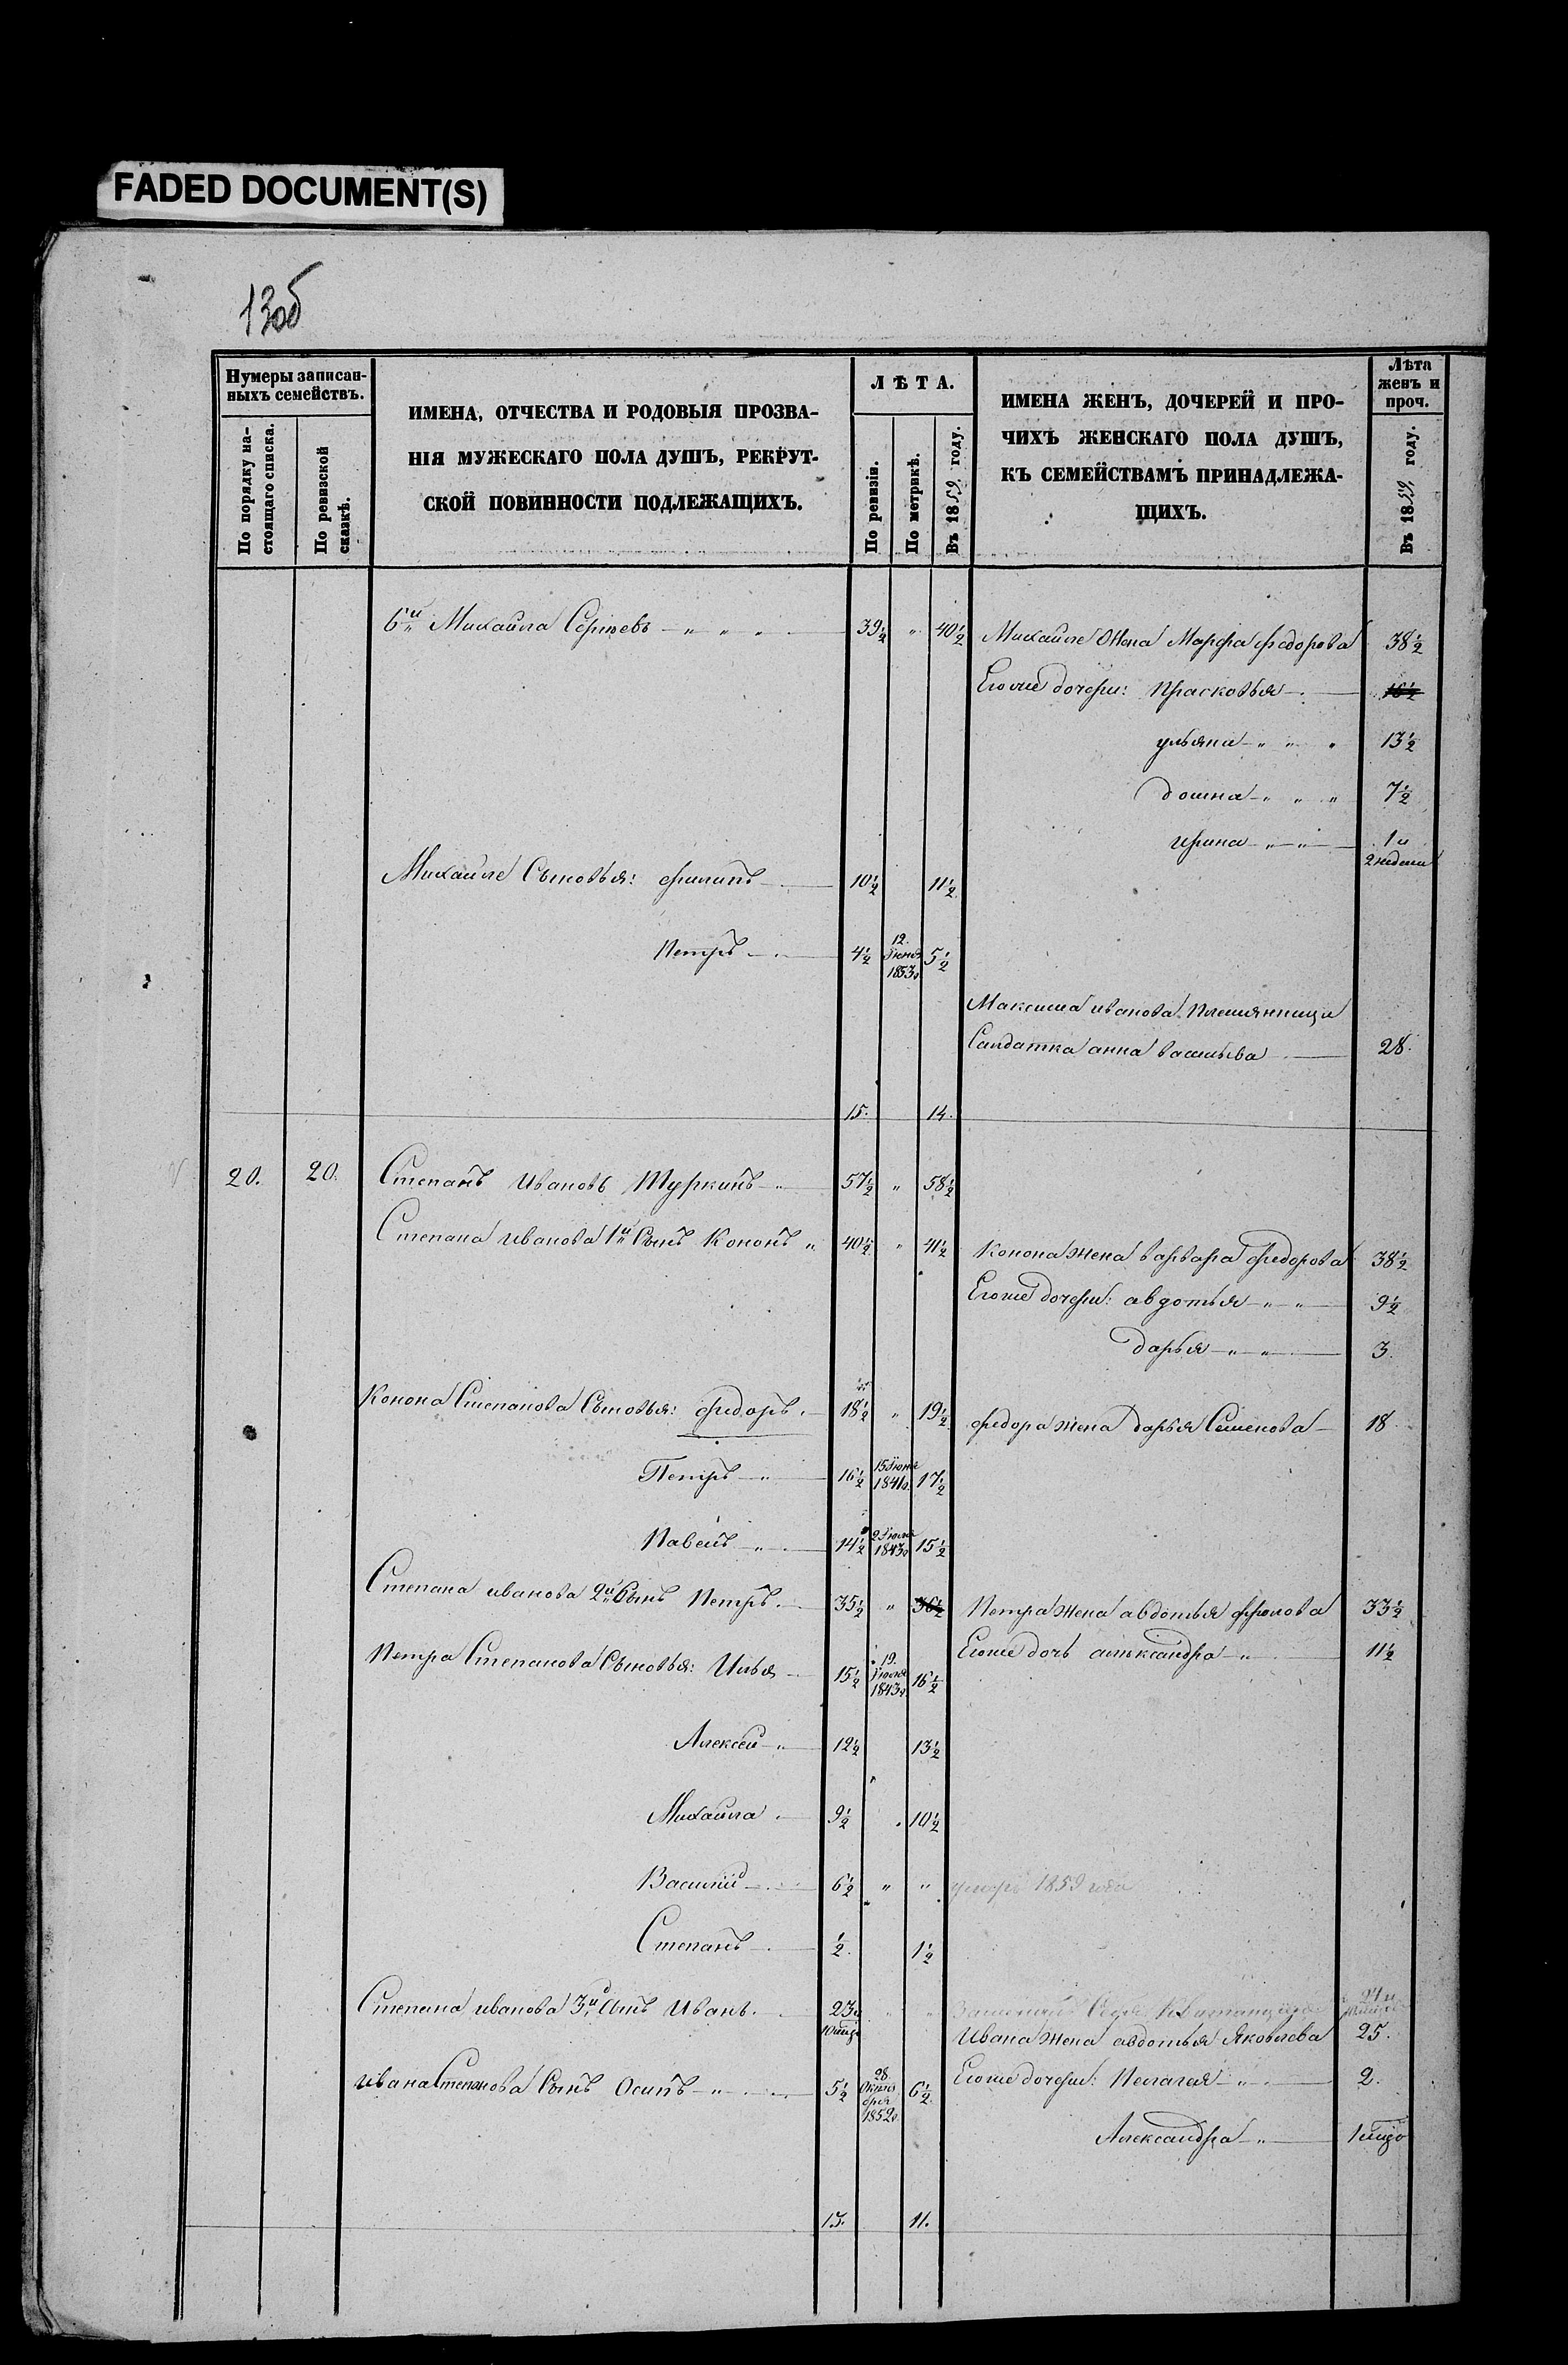 FADED DOCUMENT(S)
13об
Нумеры записан-
ныхъ семействъ.
По порядку на-
стоящаго списка.
По ревизской
скакѣ.
ИМЕНА, ОТЧЕСТВА И РОДОВЫЯ ПРОЗВА-
НІЯ МУЖЕСКАГО ПОЛА ДУШЪ, РЕКРУТ-
СКОЙ ПОВИННОСТИ ПОДЛЕЖАЩИХЪ.
ЛѢТА.
По ревизіи.
По метрикѣ.
Въ 1859 году.
ИМЕНА ЖЕНЪ, ДОЧЕРЕЙ И ПРО-
ЧИХЪ ЖЕНСКАГО ПОЛА ДУШЪ,
КЪ СЕМЕЙСТВАМЪ ПРИНАДЛЕЖА-
ЩИХЪ.
Лѣта
женъ и
проч.
Въ 1859 году.
6й Михайла Сергѣевъ — " " " 39½ " 40½ Михайле Жена Марфа федорова 38½
Егоже дочери: Прасковья — 16½
ульяна — " " " 13½
домна — " " " 7½
ирина — " " 1 и
2 недели
Михайле Сыновья: филипъ — 10½ 11½
Петръ — 4½ 12. Іюня 1853г 5½
Максима иванова Племянница
Салдатка анна васильева — 28.
15. 14.
20. 20. Степанъ Ивановъ Туркинъ — " 57½ " 58½
Степана иванова 1й Сынъ Кононъ " 40½ " 41½ Конона Жена варвара федорова 38½
Егоже дочери: авдотья — " " 9½
дарья — " " 3.
Конона Степанова Сыновья: федоръ. — 18½ " 19½ федора жена дарья Семенова — 18
Петръ — " 16½ 15 Іюня 1841г. 17½
Павелъ — " 14½ 2 Іюля 1843г 15½
Степана иванова 2й Сынъ Петръ. — 35½ " 36½ Петра Жена авдотья фролова 33½
Егоже дочь александра — " 11½
Петра Степанова Сыновья: Илья — 15½ 19. Іюля 1843г. 16½
Алексей — " 12½ 13½
Михайла — 9½ " 10½
Василий — 6½ " " умеръ 1859 года
Степанъ — ½. 1½
Степана иванова 3й Сынъ Иванъ. — 23 и " "
Ивана Жена авдотья Яковлева 25.
Ивана Степанова Сынъ Осипъ — " 5½ 28 Октября 1852г. 6½ Егоже дочери: Пелагея — " 2.
Александра — "
15. 11.